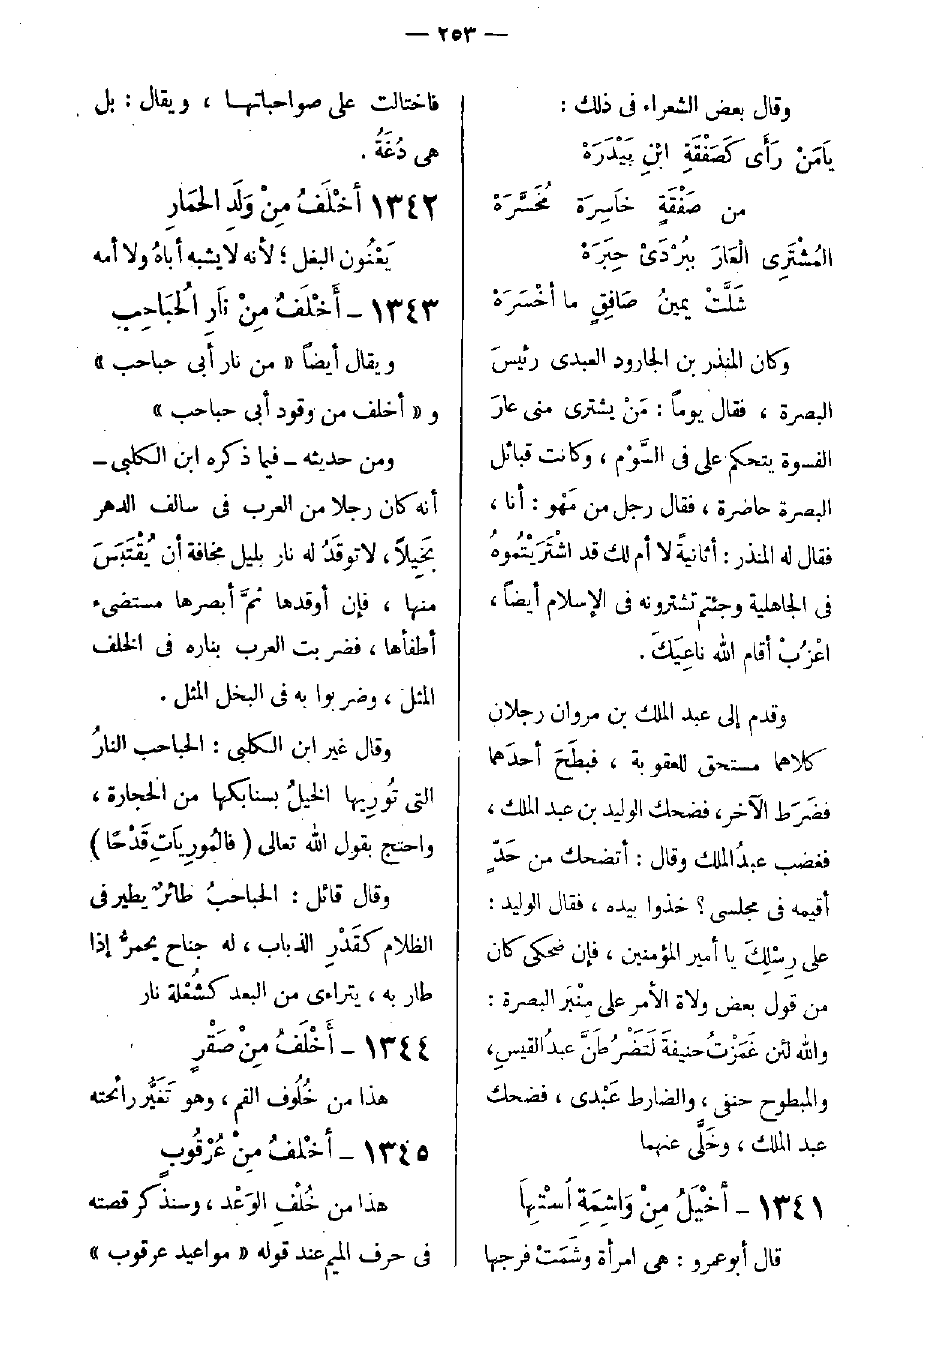 — ٢٥٣ —
وقال بعض الشعراء فى ذلك :
يَامَنْ رَأَى كَصَفْقَةِ ابْنِ بَيْدَرَهْ
من صَفْقَةٍ خَاسِرَة مُخَسَّرَهْ
المُشْتَرِى الْعَارَ بِبُرْدَىْ حِبَرَهْ
شَلَّتْ يمينُ صَافِقٍ ما أخْسَرَهْ
وكان المنذر بن الجارود العبدى رئيسَ
البصرة ، فقال يوماً : مَنْ يشترى منى عارَ
الفسوة يتحكم على فى السَّوْم ، وكانت قبائل
البصرة حاضرة ، فقال رجل من مَهْو : أنا ،
فقال له المنذر : أثانيةً لا أم لك قد اشْتَرَيْتُموهُ
فى الجاهلية وجئتم تشترونه فى الإسلام أيضاً ،
اعْزُبْ أقام الله نَاعِيَكَ .
وقدم إلى عبد الملك بن مروان رجلان
كلاهما مستحق للعقوبة ، فبطَحَ أحدَهما
فضَرَط الآخر، فضحك الوليد بن عبد الملك ،
فغضب عبدُ الملك وقال : أتضحك من حَدّ
أقيمه فى مجلسى؟ خذوا بيده ، فقال الوليد :
على رِسْلِكَ يا أمير المؤمنين ، فإن ضحكى كان
من قول بعض ولاة الأمر على مِنْبَر البصرة :
والله لئن غَمَزْتُ حنيفة لَتَضْرُطَنَّ عبدُ القيس،
والمبطوح حنفى ، والضارط عَبْدى ، فضحك
عبد الملك ، وخَلَّى عنهما
١٣٤١ – أَخْيَلُ مِنْ وَاشِمَةِ اسْتِهَا
قال أبو عمرو : هى امرأة وشَمَتْ فرجها
فاختالت على صواحباتها ، ويقال : بل
هى دُغَةُ .
١٣٤٢ أَخْلَفُ مِنْ وَلَدِ الحْمَارِ
يَعْنُون البغل ؛ لأنه لا يشبه أباهُ ولا أمه
١٣٤٣ – أَخْلَفُ مِنْ نَارِ الْحُبَاحِبِ
ويقال أيضاً « من نار أبى حباحب »
و « أخلف من وقود أبى حباحب »
ومن حديثه – فيما ذكره ابن الكلبى –
أنه كان رجلا من العرب فى سالف الدهر
بَخِيلاً، لا توقَدُ له نار بليل مخافة أن يُقْتَبَسَ
منها ، فإن أوقدها ثمَّ أبصرها مستضىء
أطفأها ، فضربت العرب بناره فى الخلف
المثل ، وضربوا به فى البخل المثل .
وقال غير ابن الكلبى : الحباحب النارُ
التى تُورِيها الخيلُ بسنابكها من الحجارة ،
واحتج بقول الله تعالى ( فالمُورِيَاتِ قَدْحًا )
وقال قائل : الحباحبُ طائرٌ يطير فى
الظلام كَقَدْرِ الذباب ، له جناح يحمرُّ إذا
طار به ، يتراءى من البعد كشُعْلة نار
١٣٤٤ – أَخْلَفُ مِنْ صَقْرٍ
هذا من خُلُوف الفم ، وهو تَغَيُّر رائحته
١٣٤٥ – أَخْلَفُ مِنْ عُرْقُوبٍ
هذا من خُلْفِ الوَعْد ، وسنذكر قصته
فى حرف الميم عند قوله « مواعيد عرقوب »